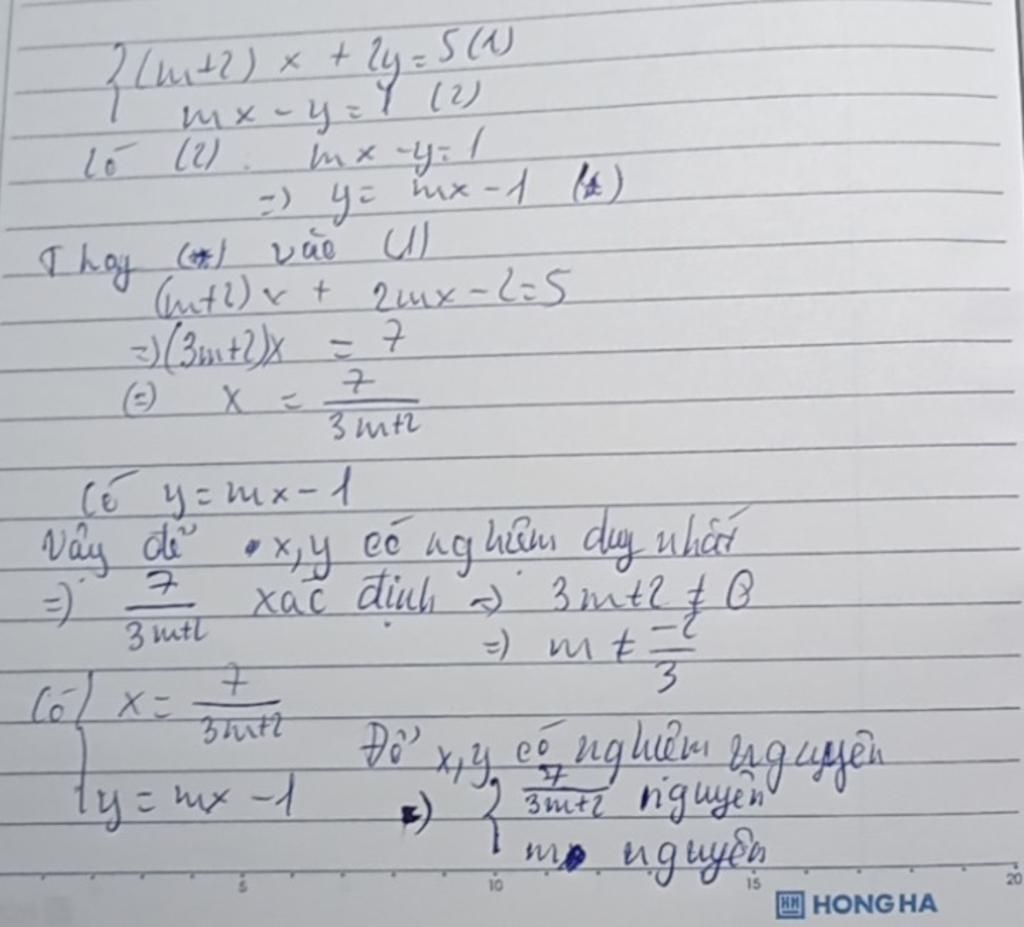 { (m+2) x + 2y = 5 (1)
mx - y = 1 (2)
Có (2) . mx - y = 1
=> y = mx - 1 (*)
Thay (*) vào (1)
(m+2) x + 2mx - 2 = 5
=> (3m+2)x = 7
(=) x = 7/3m+2
Có y = mx - 1
Vậy để x, y có nghiệm duy nhất
=> 7/3m+2 xác định => 3m+2 ≠ 0
=> m ≠ -2/3
Có { x = 7/3m+2
Để x, y có nghiệm nguyên
y = mx - 1 => { 7/3m+2 nguyên
m nguyên
5 10 15 20
HH HONG HA